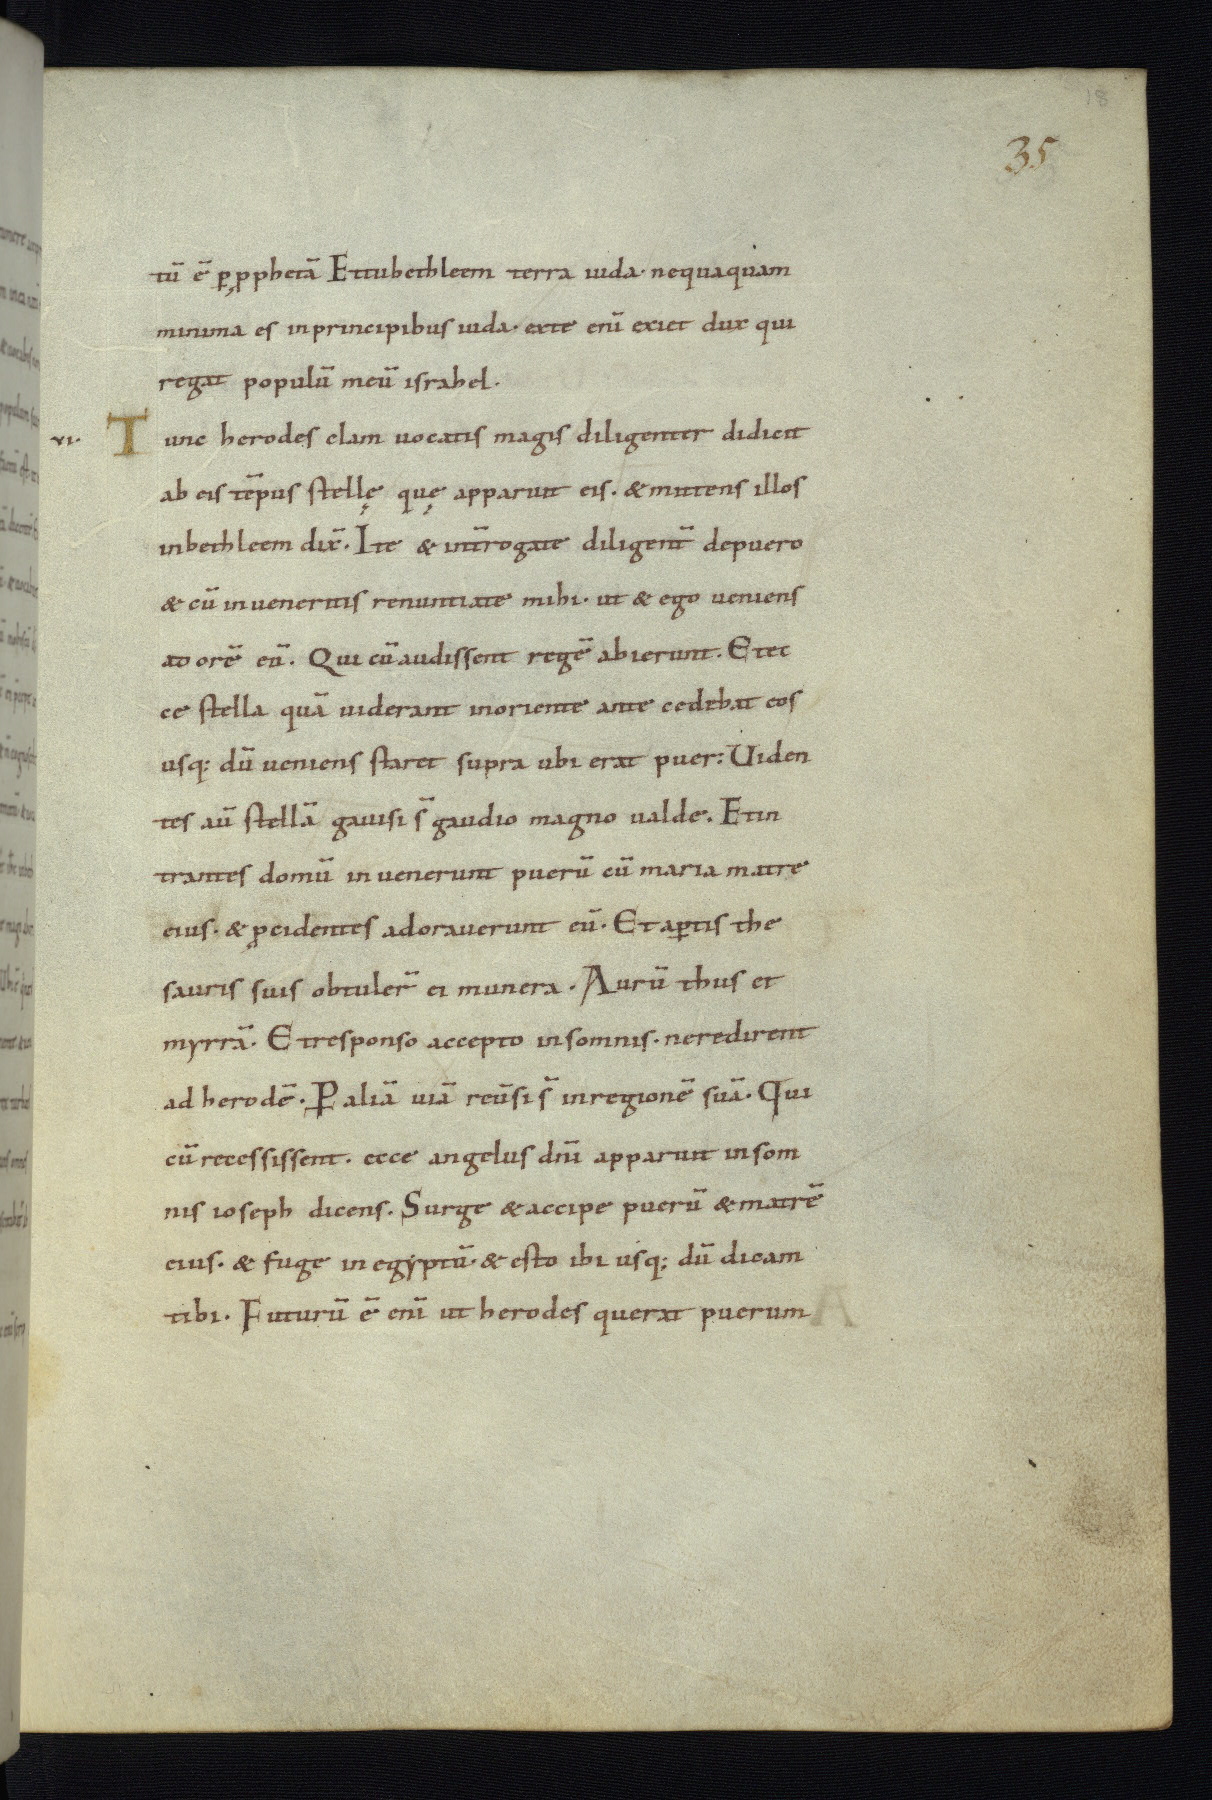 18
35
tū ē ꝑ ꝓphetā Ettubethleem terra iuda· nequaquam
minima es inprincipibus iuda· exte enī exiet dux qui
regat populū meū israhel.
vi. Tunc herodes clam uocatis magis diligenter didicit
ab eis tēpus stellę quę apparuit eis. & mittens illos
inbethleem dix̄. Ite & int̄rogate diligent̄ depuero
& cū inueneritis renuntiate mihi. ut & ego ueniens
adorē eū. Qui cū audissent regē abierunt. Etec
ce stella quā uiderant inoriente antecedebat eos
usq; dū ueniens staret supra ubi erat puer: Uiden
tes aū stellā gauisi s̄ gaudio magno ualde. Etin
trantes domū inuenerunt puerū cū maria matre
eius. & ꝓcidentes adorauerunt eū. Et aꝑtis the
sauris suis obtuler̄ ei munera. Aurū thus et
myrrā. Et responso accepto insomnis. neredirent
ad herodē. Ꝑ aliā uiā reūsi s̄ inregionē suā. Qui
cū recessissent. ecce angelus dnī apparuit insom
nis ioseph dicens. Surge & accipe puerū & matrē
eius. & fuge in egyptū. & esto ibi usq; dū dicam
tibi. Futurū ē enī ut herodes querat puerum